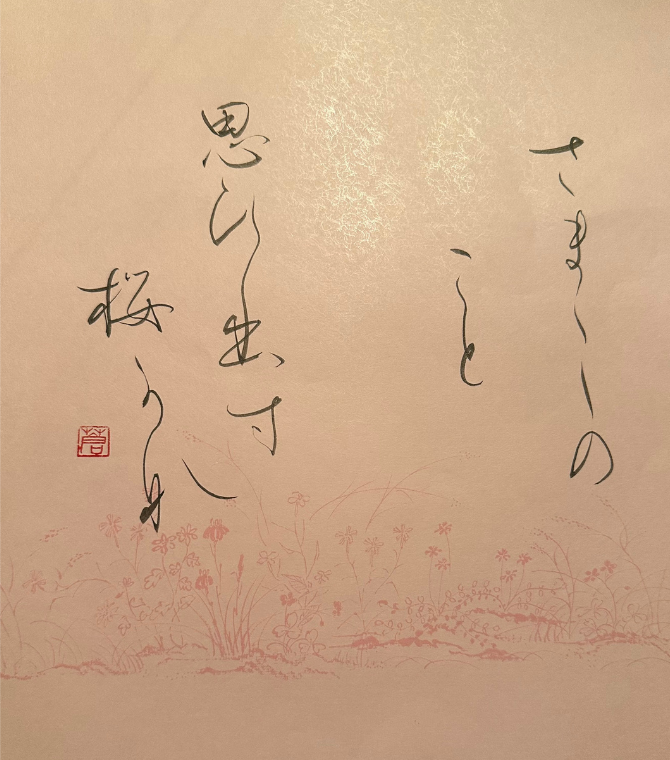 さま〱の
こと
思ひ出す
桜かな